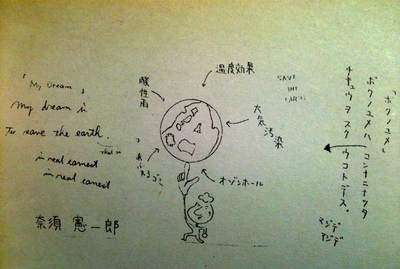 「My Dream」
My dream is
To save the earth.
that is
in real earnest
in real earnest
奈須 憲一郎
酸性雨
温度効果
SAVE
THE
EARTH
大気汚染
オゾンホール
あふれるゴミ
「ボクノユメ」
ボクノユメハ コンナニナッタ
チキュウヲスクウコトデス。
マジデ
マジデ